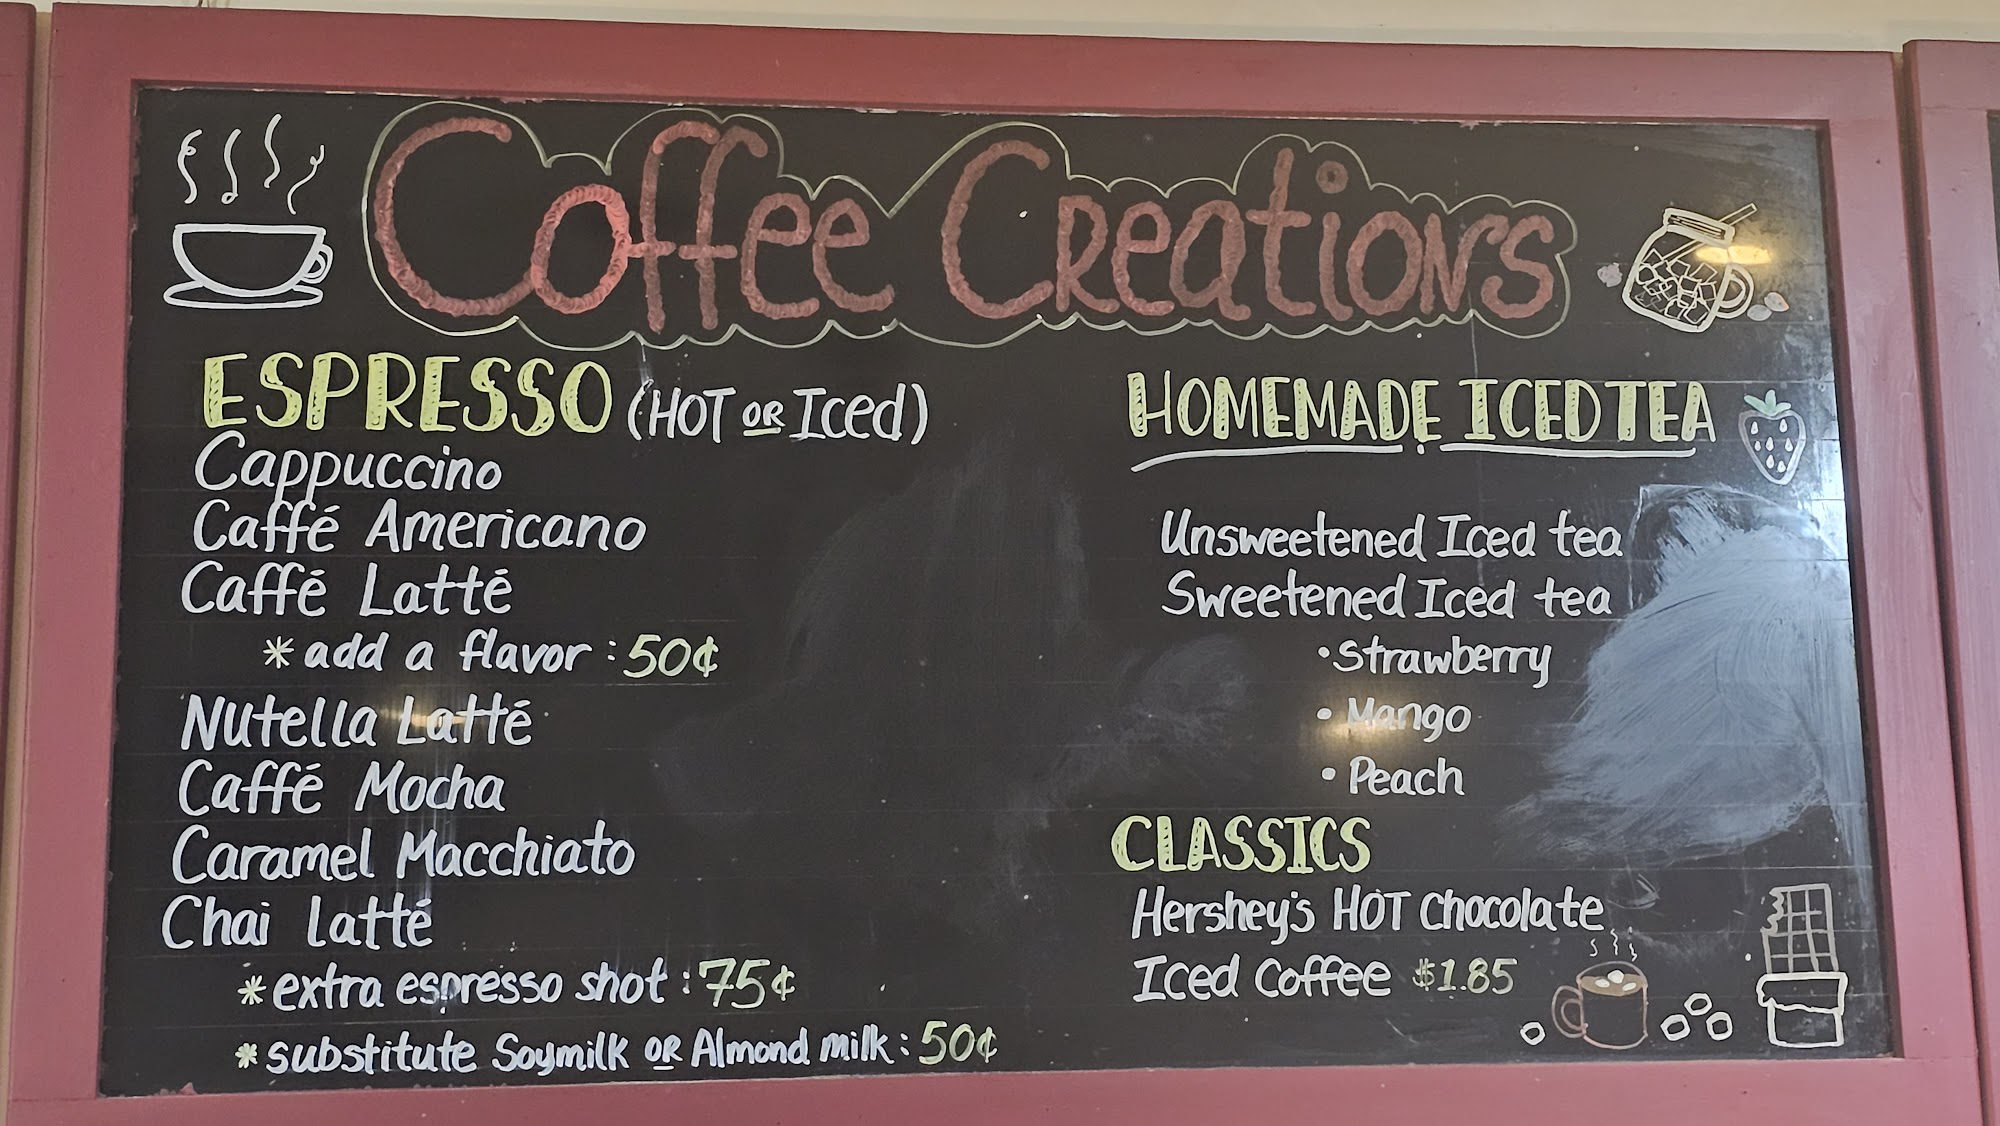 Coffee Creations
ESPRESSO (HOT OR Iced)
Cappuccino
Caffé Americano
Caffé Latté
* add a flavor : 50¢
Nutella Latté
Caffé Mocha
Caramel Macchiato
Chai Latté
* extra espresso shot : 75¢
* substitute Soymilk OR Almond milk : 50¢
HOMEMADE ICED TEA
Unsweetened Iced tea
Sweetened Iced tea
• Strawberry
• Mango
• Peach
CLASSICS
Hershey's HOT Chocolate
Iced Coffee $1.85